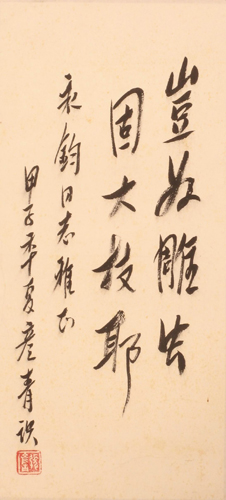 豈雕虫
固大技耶
鈞同志雅正
甲子年夏青识